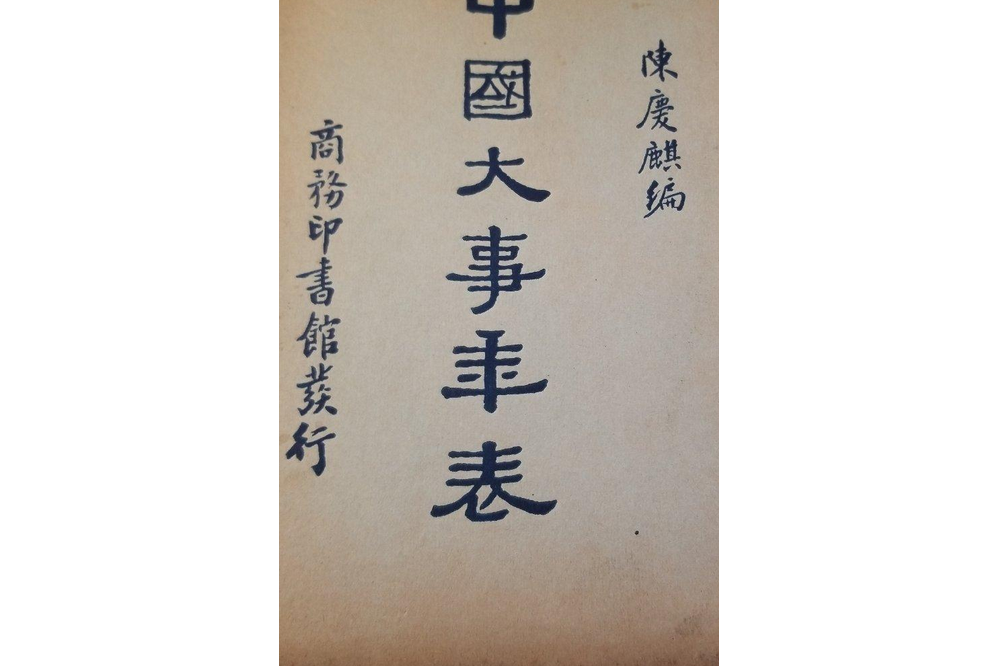 陳慶麒編
中國大事年表
商務印書館發行